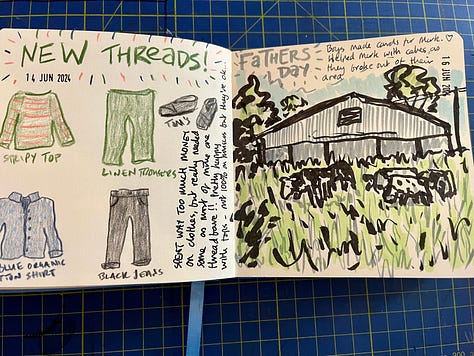 NEW THREADS!
14 JUN 2024
STRIPY TOP
LINEN TROUSERS
TOMS
SPENT WAY TOO MUCH MONEY
on clothes, but really needed
some as most of mine are
thread bare!! Pretty happy
with tops - not 100% on trousers but they're ok...
BLUE ORGANIC
TTON SHIRT
BLACK JEANS
FATHERS
DAY
Boys made cards for Mark. ♡
Helped Mark with calves, as
they broke out of their
area
16 JUN